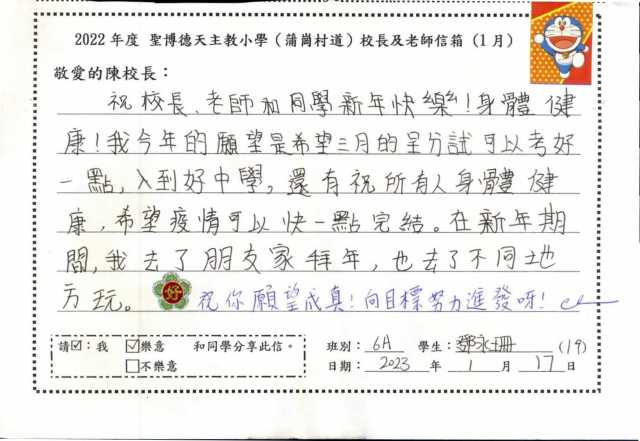 2022年度 聖博德天主教小學（蒲崗村道）校長及老師信箱（1月）
敬愛的陳校長：
祝校長、老師和同學新年快樂！身體健
康！我今年的願望是希望三月的呈分試可以考好
一點，入到好中學。還有祝所有人身體健
康，希望疫情可以快一點完結。在新年期
間，我去了朋友家拜年，也去了不同地
方玩。 好 祝你願望成真！向目標努力進發呀！
請☑：我 ☑樂意 和同學分享此信。
□不樂意
班別： 6A 學生： 鄧永珊 (19)
日期： 2023 年 1 月 17 日